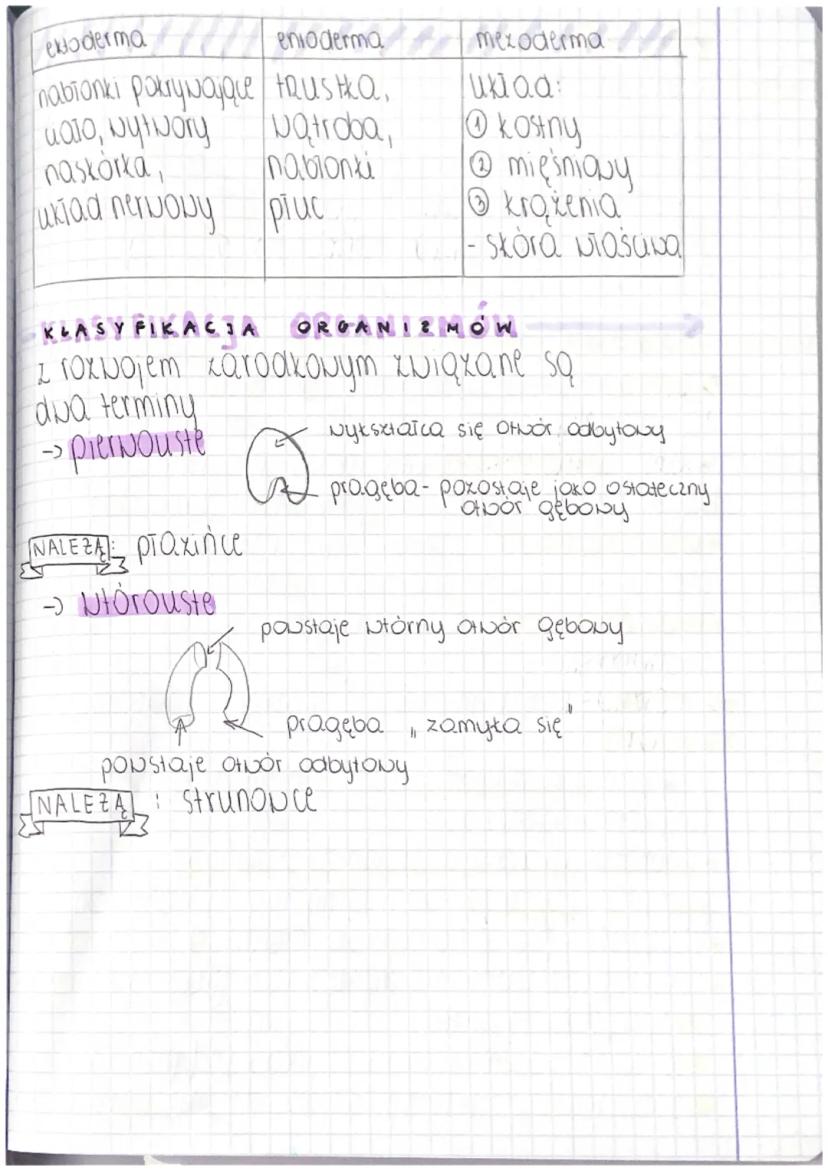 ektoderma
nabłonki pokrywające
ciało, wytwory
naskórka,
układ nerwowy
entoderma
trustka,
wątroba,
nabłonki
płuc
mezoderma
układ:
① kostny
② mięśniowy
③ krążenia
- skóra właściwa
KLASYFIKACJA ORGANIZMÓW
z rozwojem zarodkowym związane są
dwa terminy
-> pierwouste
wykształca się otwór odbytowy
pragęba - pozostaje jako ostateczny
otwór gębowy
NALEŻĄ: płazińce
-> wtórouste
powstaje wtórny otwór gębowy
pragęba „zamyka się"
powstaje otwór odbytowy
NALEŻĄ : strunowce